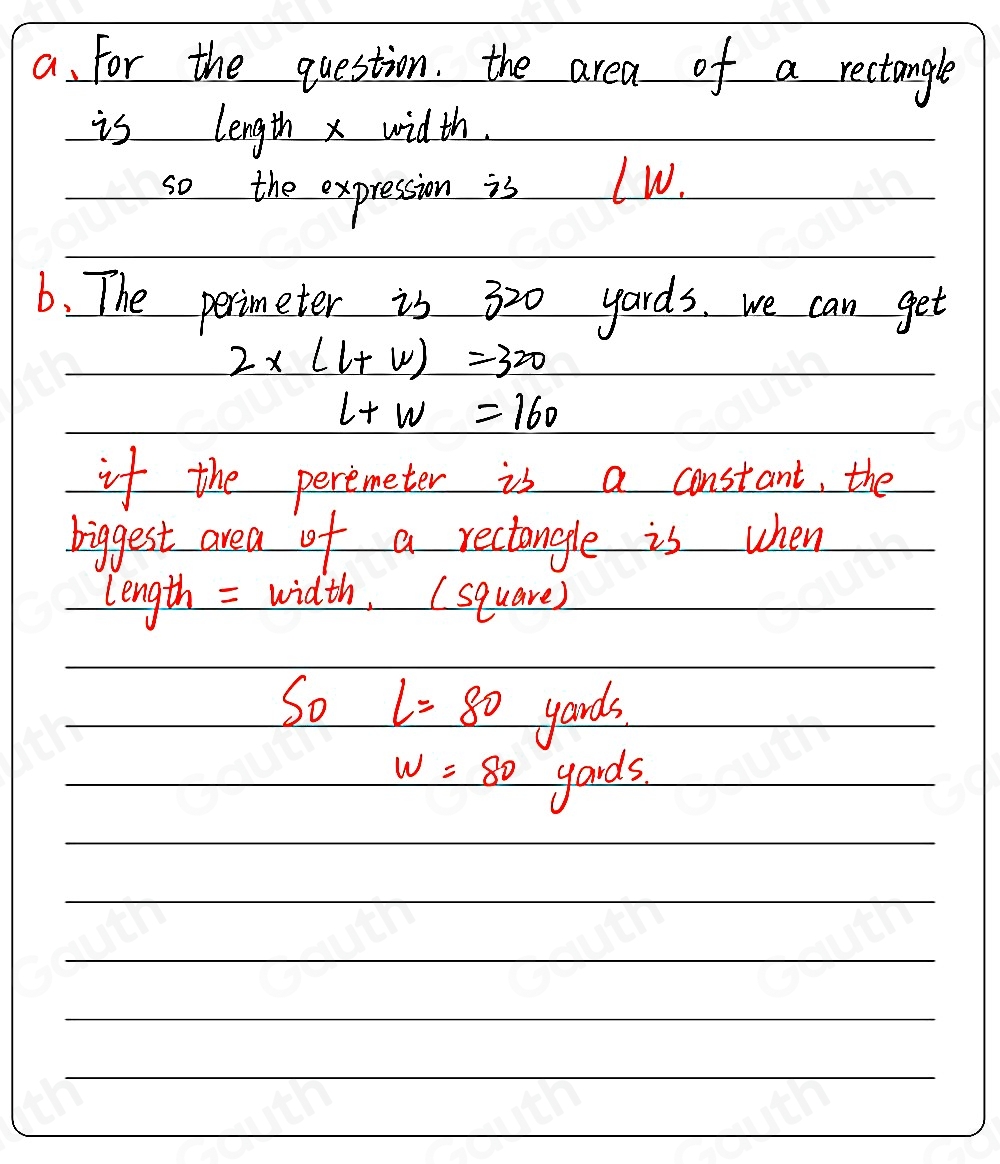 a、For the question. the area of a rectangle
is length x width.
so the expression is LW.
b、The perimeter is 320 yards. we can get
2 x (L+ W) =320
L+ W = 160
if the peremeter is a constant, the
biggest area of a rectangle is when
length = width. (square)
So L= 80 yards.
W = 80 yards.
Gauth